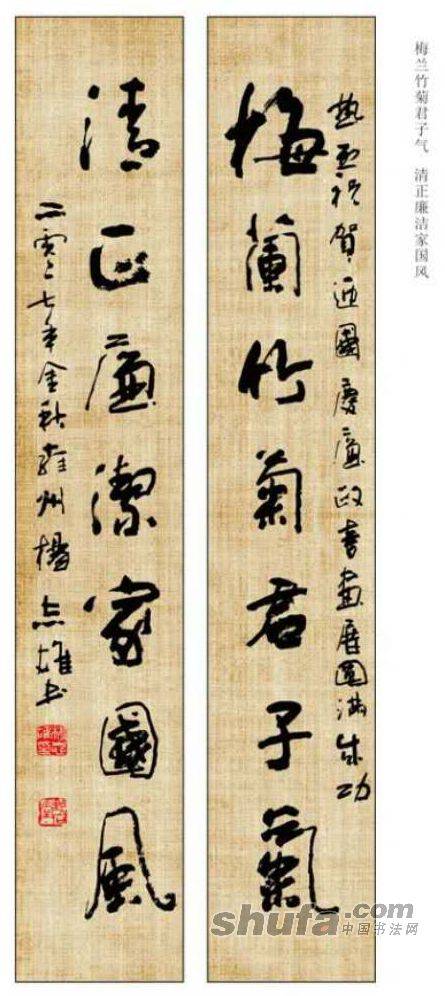 梅兰竹菊君子气 清正廉洁家国风
熱烈祝賀迎國慶廉政書畫展圓滿成功
梅蘭竹菊君子氣
清正廉潔家國風
二零一七年金秋雍州楊志雄書
shufa.com
中国书法网